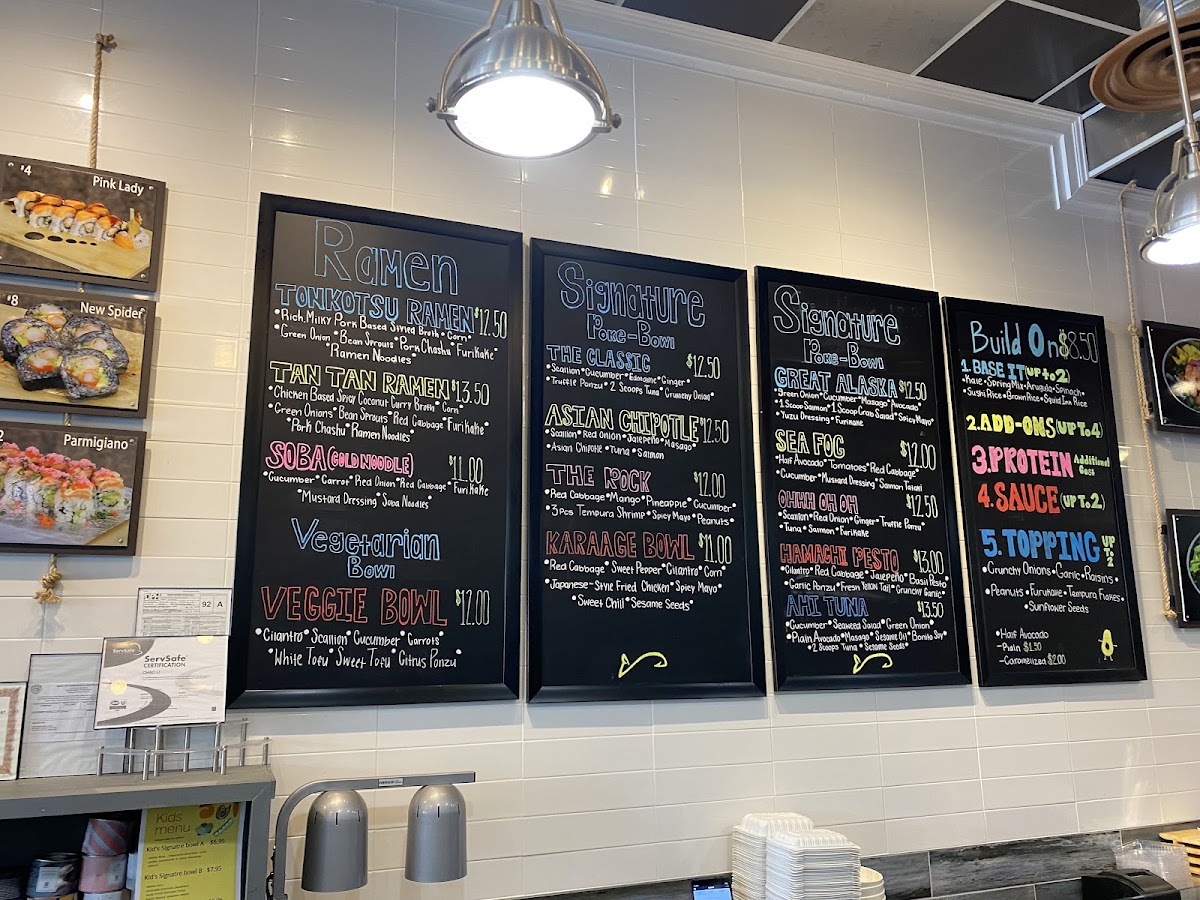 #4 Pink Lady
#8 New Spider
Parmigiano
Ramen
TONKOTSU RAMEN $12.50
•Rich Milky Pork Based Syived Broth •Corn•
•Green Onion •Bean Sprouts •Pork Chashu •Furikake
•Ramen Noodles•
TAN TAN RAMEN $13.50
•Chicken Based Spicy Coconut Curry Broth •Corn•
•Green Onions •Bean Sprouts •Red Cabbage •Furikake•
•Pork Chashu •Ramen Noodles
SOBA (COLD NOODLE) $11.00
•Cucumber •Carrot •Red Onion •Red Cabbage •Furikake
•Mustard Dressing •Soba Noodles•
Vegetarian
Bowl
VEGGIE BOWL $12.00
•Cilantro •Scallion •Cucumber •Carrots
•White Tofu •Sweet Tofu •Citrus Ponzu
Signature
Poke-Bowl
THE CLASSIC $12.50
•Scallion •Cucumber •Edamame •Ginger•
•Truffle Ponzu •2 Scoops Tuna •Crunchy Onion•
ASIAN CHIPOTLE $12.50
•Scallion •Red Onion •Jalapeño •Masago•
•Asian Chipotle •Tuna •Salmon
THE ROCK $12.00
•Red Cabbage •Mango •Pineapple •Cucumber
•3 pcs Tempura Shrimp •Spicy Mayo •Peanuts•
KARAAGE BOWL $11.00
•Red Cabbage •Sweet Pepper •Cilantro •Corn•
•Japanese-Style Fried Chicken •Spicy Mayo•
•Sweet Chili •Sesame Seeds•
Signature
Poke-Bowl
GREAT ALASKA $12.50
•Green Onion •Cucumber •Masago •Avocado•
•1 Scoop Salmon •1 Scoop Crab Salad •Spicy Mayo•
•Yuzu Dressing •Furikake
SEA FOG $12.00
•Half Avocado •Tomatoes •Red Cabbage•
•Cucumber •Mustard Dressing •Salmon Tataki
OHHH OH OH $12.50
•Scallion •Red Onion •Ginger •Truffle Ponzu
•Tuna •Salmon •Furikake
HAMACHI PESTO $13.00
•Cilantro •Red Cabbage •Jalapeño •Basil Pesto
•Garlic Ponzu •Fresh Yellow Tail •Crunchy Garlic•
AHI TUNA $13.50
•Cucumber •Seaweed Salad •Green Onion•
•Plain Avocado •Masago •Sesame Oil •Bonito Soy
•2 Scoops Tuna •Sesame Seeds•
Build On $8.50
1. BASE IT (UP to 2)
•Kale •Spring Mix •Arugula •Spinach•
•Sushi Rice •Brown Rice •Squid Ink Rice
2. ADD-ONS (UP TO 4)
3. PROTEIN Additional Cost
4. SAUCE (UP TO 2)
5. TOPPING UP TO 2
•Crunchy Onions •Garlic •Raisins•
•Peanuts •Furikake •Tempura Flakes•
•Sunflower Seeds
•Half Avocado
-Plain $1.50
-Caramelized $2.00
92 A
ServSafe
ServSafe
CERTIFICATION
Kids
menu
Kid's Signatre bowl A $6.95
Kid's Signatre bowl B $7.95